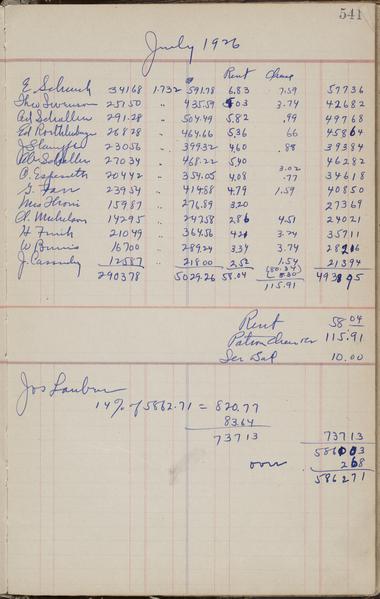 541
July 1926
Rent Cheese
E Schuck 34168 1.732 591.78 6.83 7.59 57736
Theo Swenson 25150 " 435.59 503 3.74 42682
Ad Schaller 291.28 " 504.49 5.82 .99 49768
Ed 26828 " 464.66 5.36 66 45864
J Stauffer 23056 " 399.32 4.60 .88 39384
Schaller 27034 " 468.22 5.40 46282
3.02
C. Espeseth 20442 " 354.05 4.08 .77 34618
G. Farr 23954 " 414.88 4.79 1.59 40850
Mrs 15987 " 276.89 3.20 27369
A. Mickelson 14295 " 247.58 2.86 4.51 24021
H Funk 21049 " 364.56 421 3.24 35711
W Bunnis 16700 " 289.24 3.34 3.74 28216
J. Cassidy 12587 " 218.00 2.52 1.54 21394
290378 5029.26 58.04 493895
115.91
Rent 58 04
Patron Cheese 115.91
Ser Bal 10.00
Jos Lauber
14% of 5862.71 = 820.77
83.64
73713 73713
586003
over 268
586271